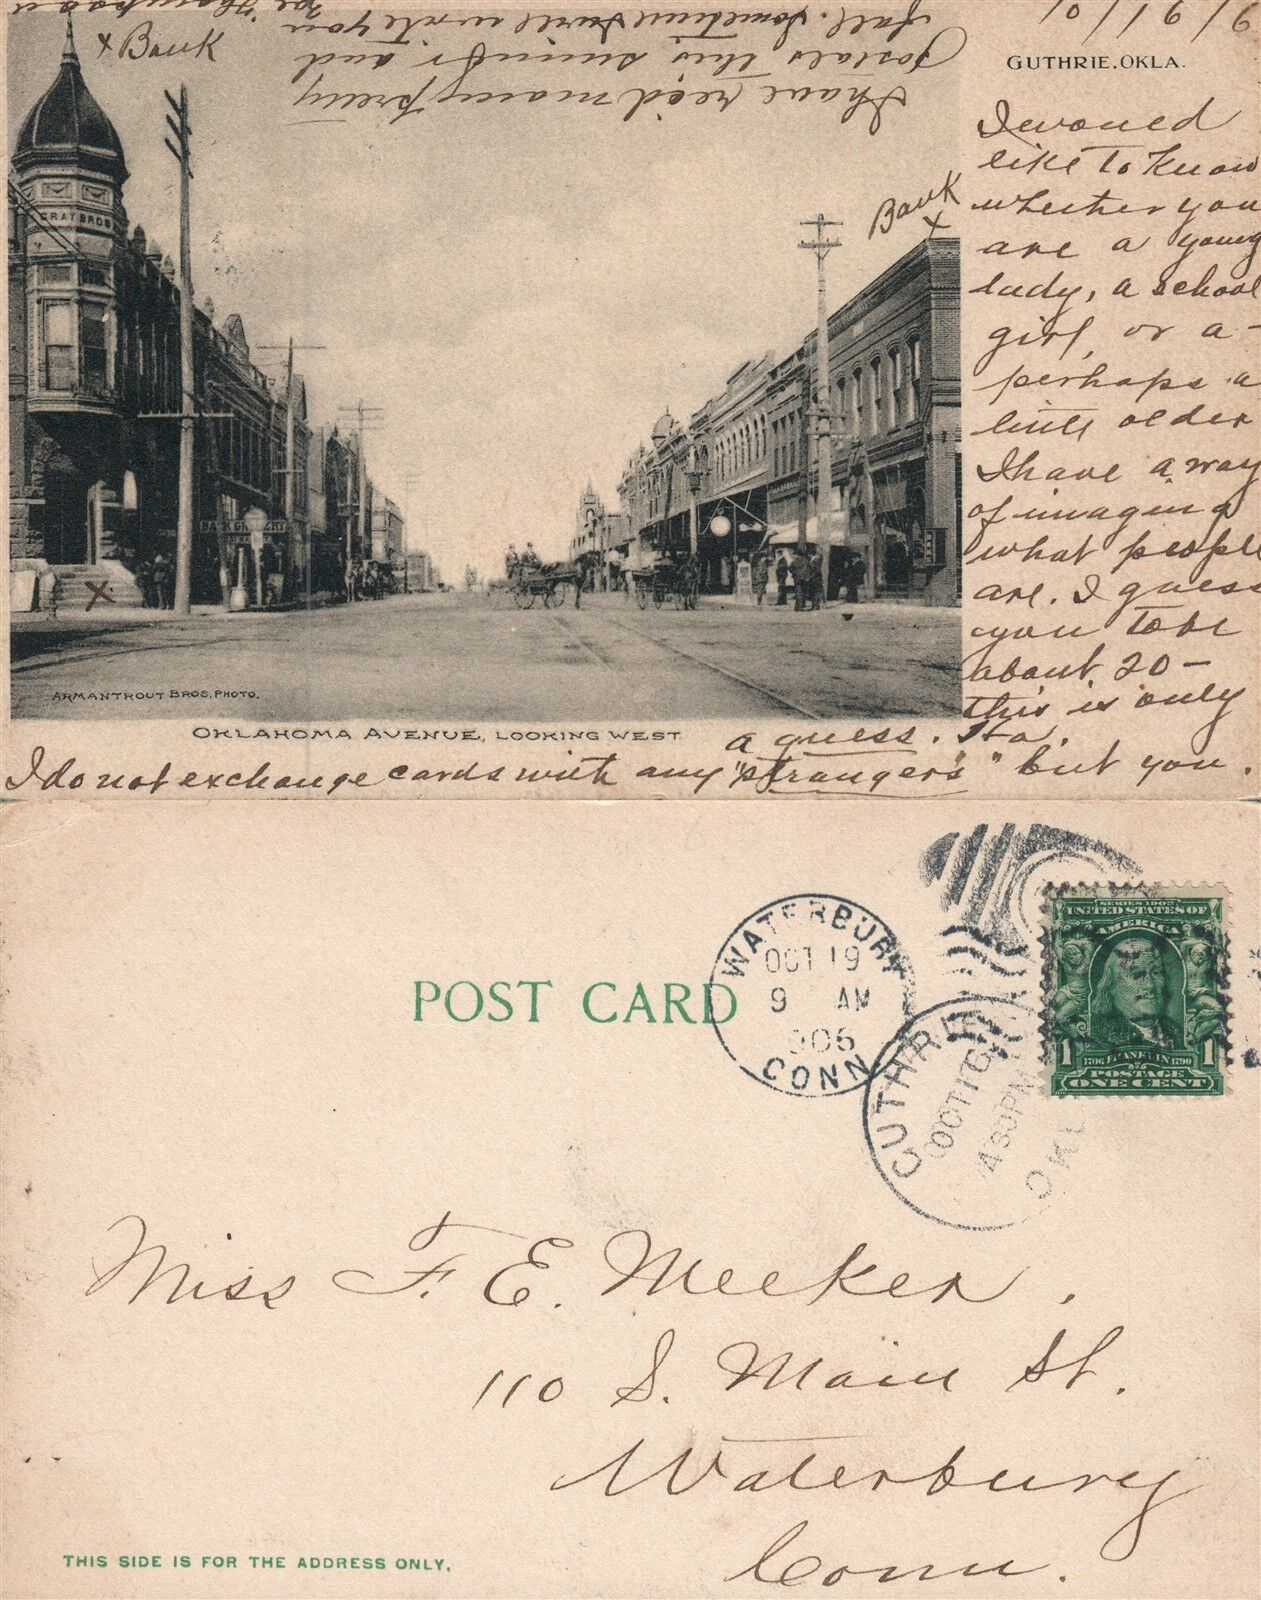 10/16/6
GUTHRIE, OKLA.
I have rec'd many pretty
Postals this summer and
fall. Sometime I will write you
x Bank
Bank
x
GRAY BROS
I would
like to know
whether you
are a young
lady, a school
girl, or a -
perhaps a
little older
I have a way
of imagin g
what people
are. I guess
you to be
about 20 -
this is only
a guess. Ha.
x
ARMANTROUT BROS. PHOTO.
OKLAHOMA AVENUE, LOOKING WEST
I do not exchange cards with any "strangers" but you.
POST CARD
WATERBURY
OCT 19
9 AM
1906
CONN
GUTHRIE
OCT 16
430PM
OKLA
SERIES 1902
UNITED STATES OF
AMERICA
1 1706 FRANKLIN 1790 1
POSTAGE
ONE CENT
Miss F. E. Meeker.
110 S. Main St.
Waterbury
Conn.
THIS SIDE IS FOR THE ADDRESS ONLY.